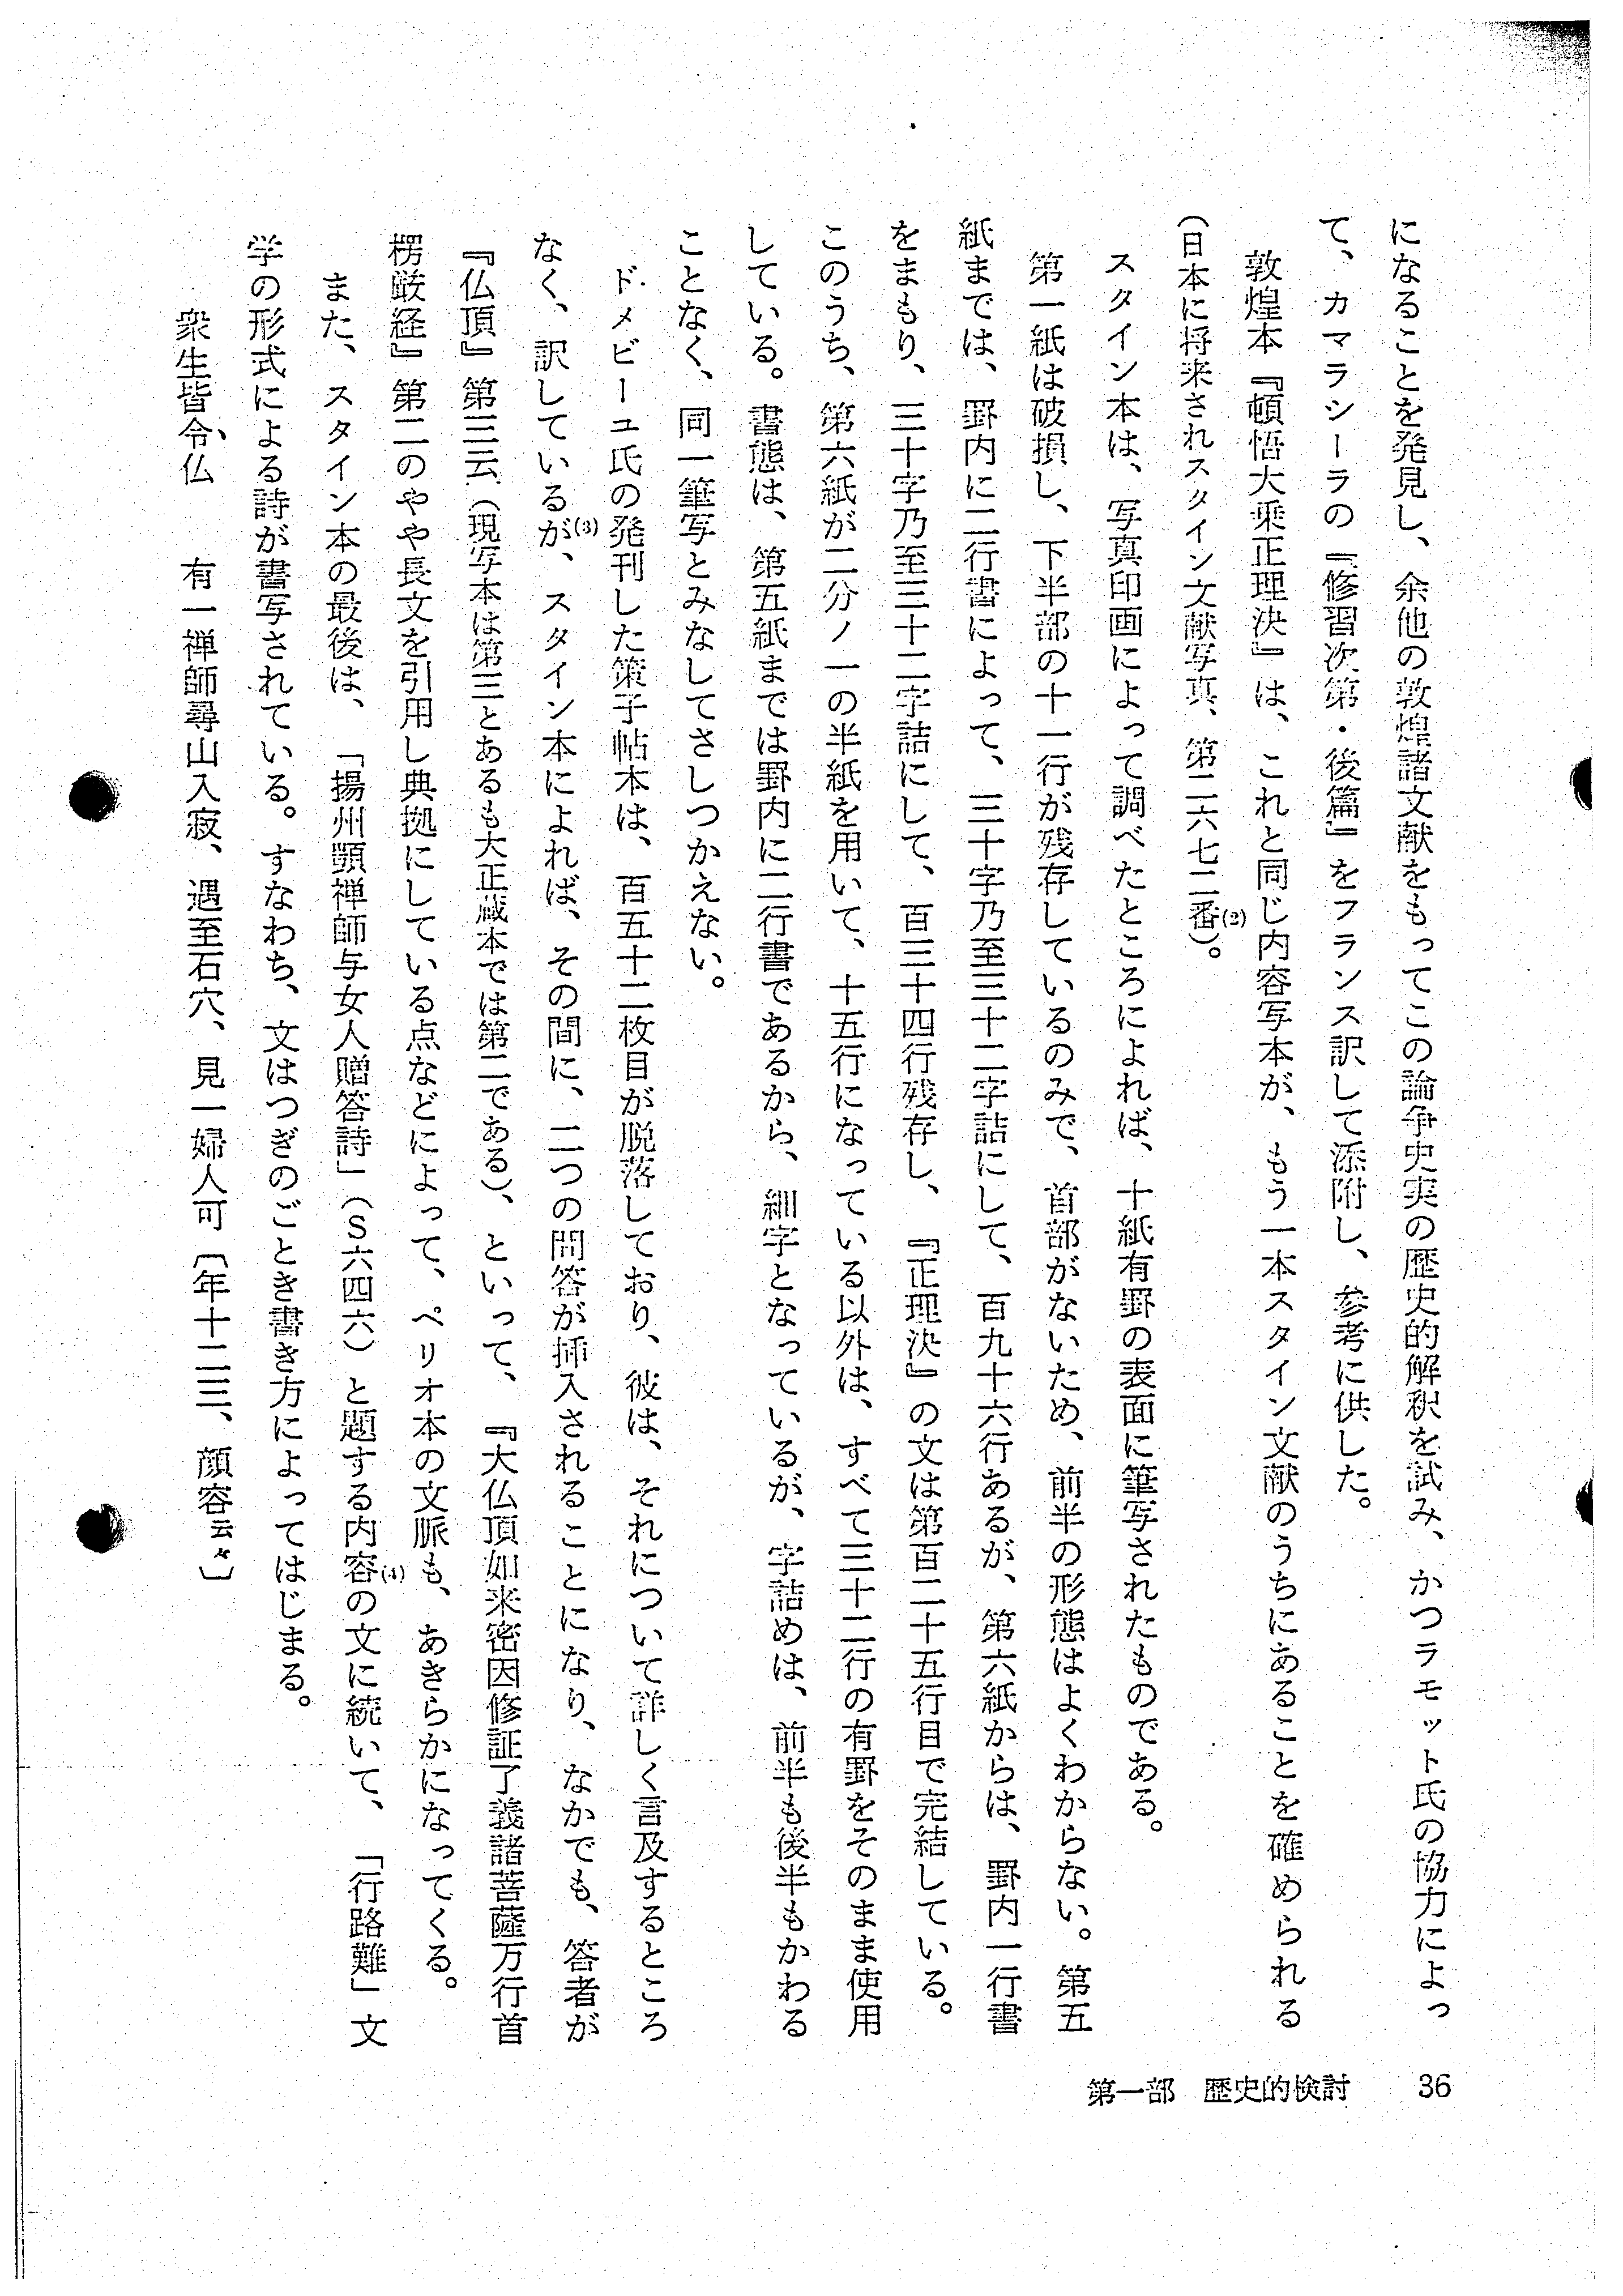 になることを発見し、余他の敦煌諸文献をもってこの論争史実の歴史的解釈を試み、かつラモット氏の協力によっ
て、カマラシーラの『修習次第・後篇』をフランス訳して添附し、参考に供した。
敦煌本『頓悟大乗正理決』は、これと同じ内容写本が、もう一本スタイン文献のうちにあることを確められる
(日本に将来されスタイン文献写真、第二六七二番)(2)。
スタイン本は、写真印画によって調べたところによれば、十紙有罫の表面に筆写されたものである。
第一紙は破損し、下半部の十一行が残存しているのみで、首部がないため、前半の形態はよくわからない。第五
紙までは、罫内に二行書によって、三十字乃至三十二字詰にして、百九十六行あるが、第六紙からは、罫内一行書
をまもり、三十字乃至三十二字詰にして、百三十四行残存し、『正理決』の文は第百二十五行目で完結している。
このうち、第六紙が二分ノ一の半紙を用いて、十五行になっている以外は、すべて三十二行の有罫をそのまま使用
している。書態は、第五紙までは罫内に二行書であるから、細字となっているが、字詰めは、前半も後半もかわる
ことなく、同一筆写とみなしてさしつかえない。
ドメビーユ氏の発刊した策子帖本は、百五十二枚目が脱落しており、彼は、それについて詳しく言及するところ
なく、訳しているが(3)、スタイン本によれば、その間に、二つの問答が挿入されることになり、なかでも、答者が
『仏頂』第三云、(現写本は第三とあるも大正蔵本では第二である)、といって、『大仏頂如来密因修証了義諸菩薩万行首
楞厳経』第二のやや長文を引用し典拠にしている点などによって、ペリオ本の文脈も、あきらかになってくる。
また、スタイン本の最後は、「揚州顗禅師与女人贈答詩」(S六四六)と題する内容(4)の文に続いて、「行路難」文
学の形式による詩が書写されている。すなわち、文はつぎのごとき書き方によってはじまる。
衆生皆令、仏 有一禅師尋山入寂、遇至石穴、見一婦人可〔年十二三、顔容云々〕
第一部 歴史的検討 36